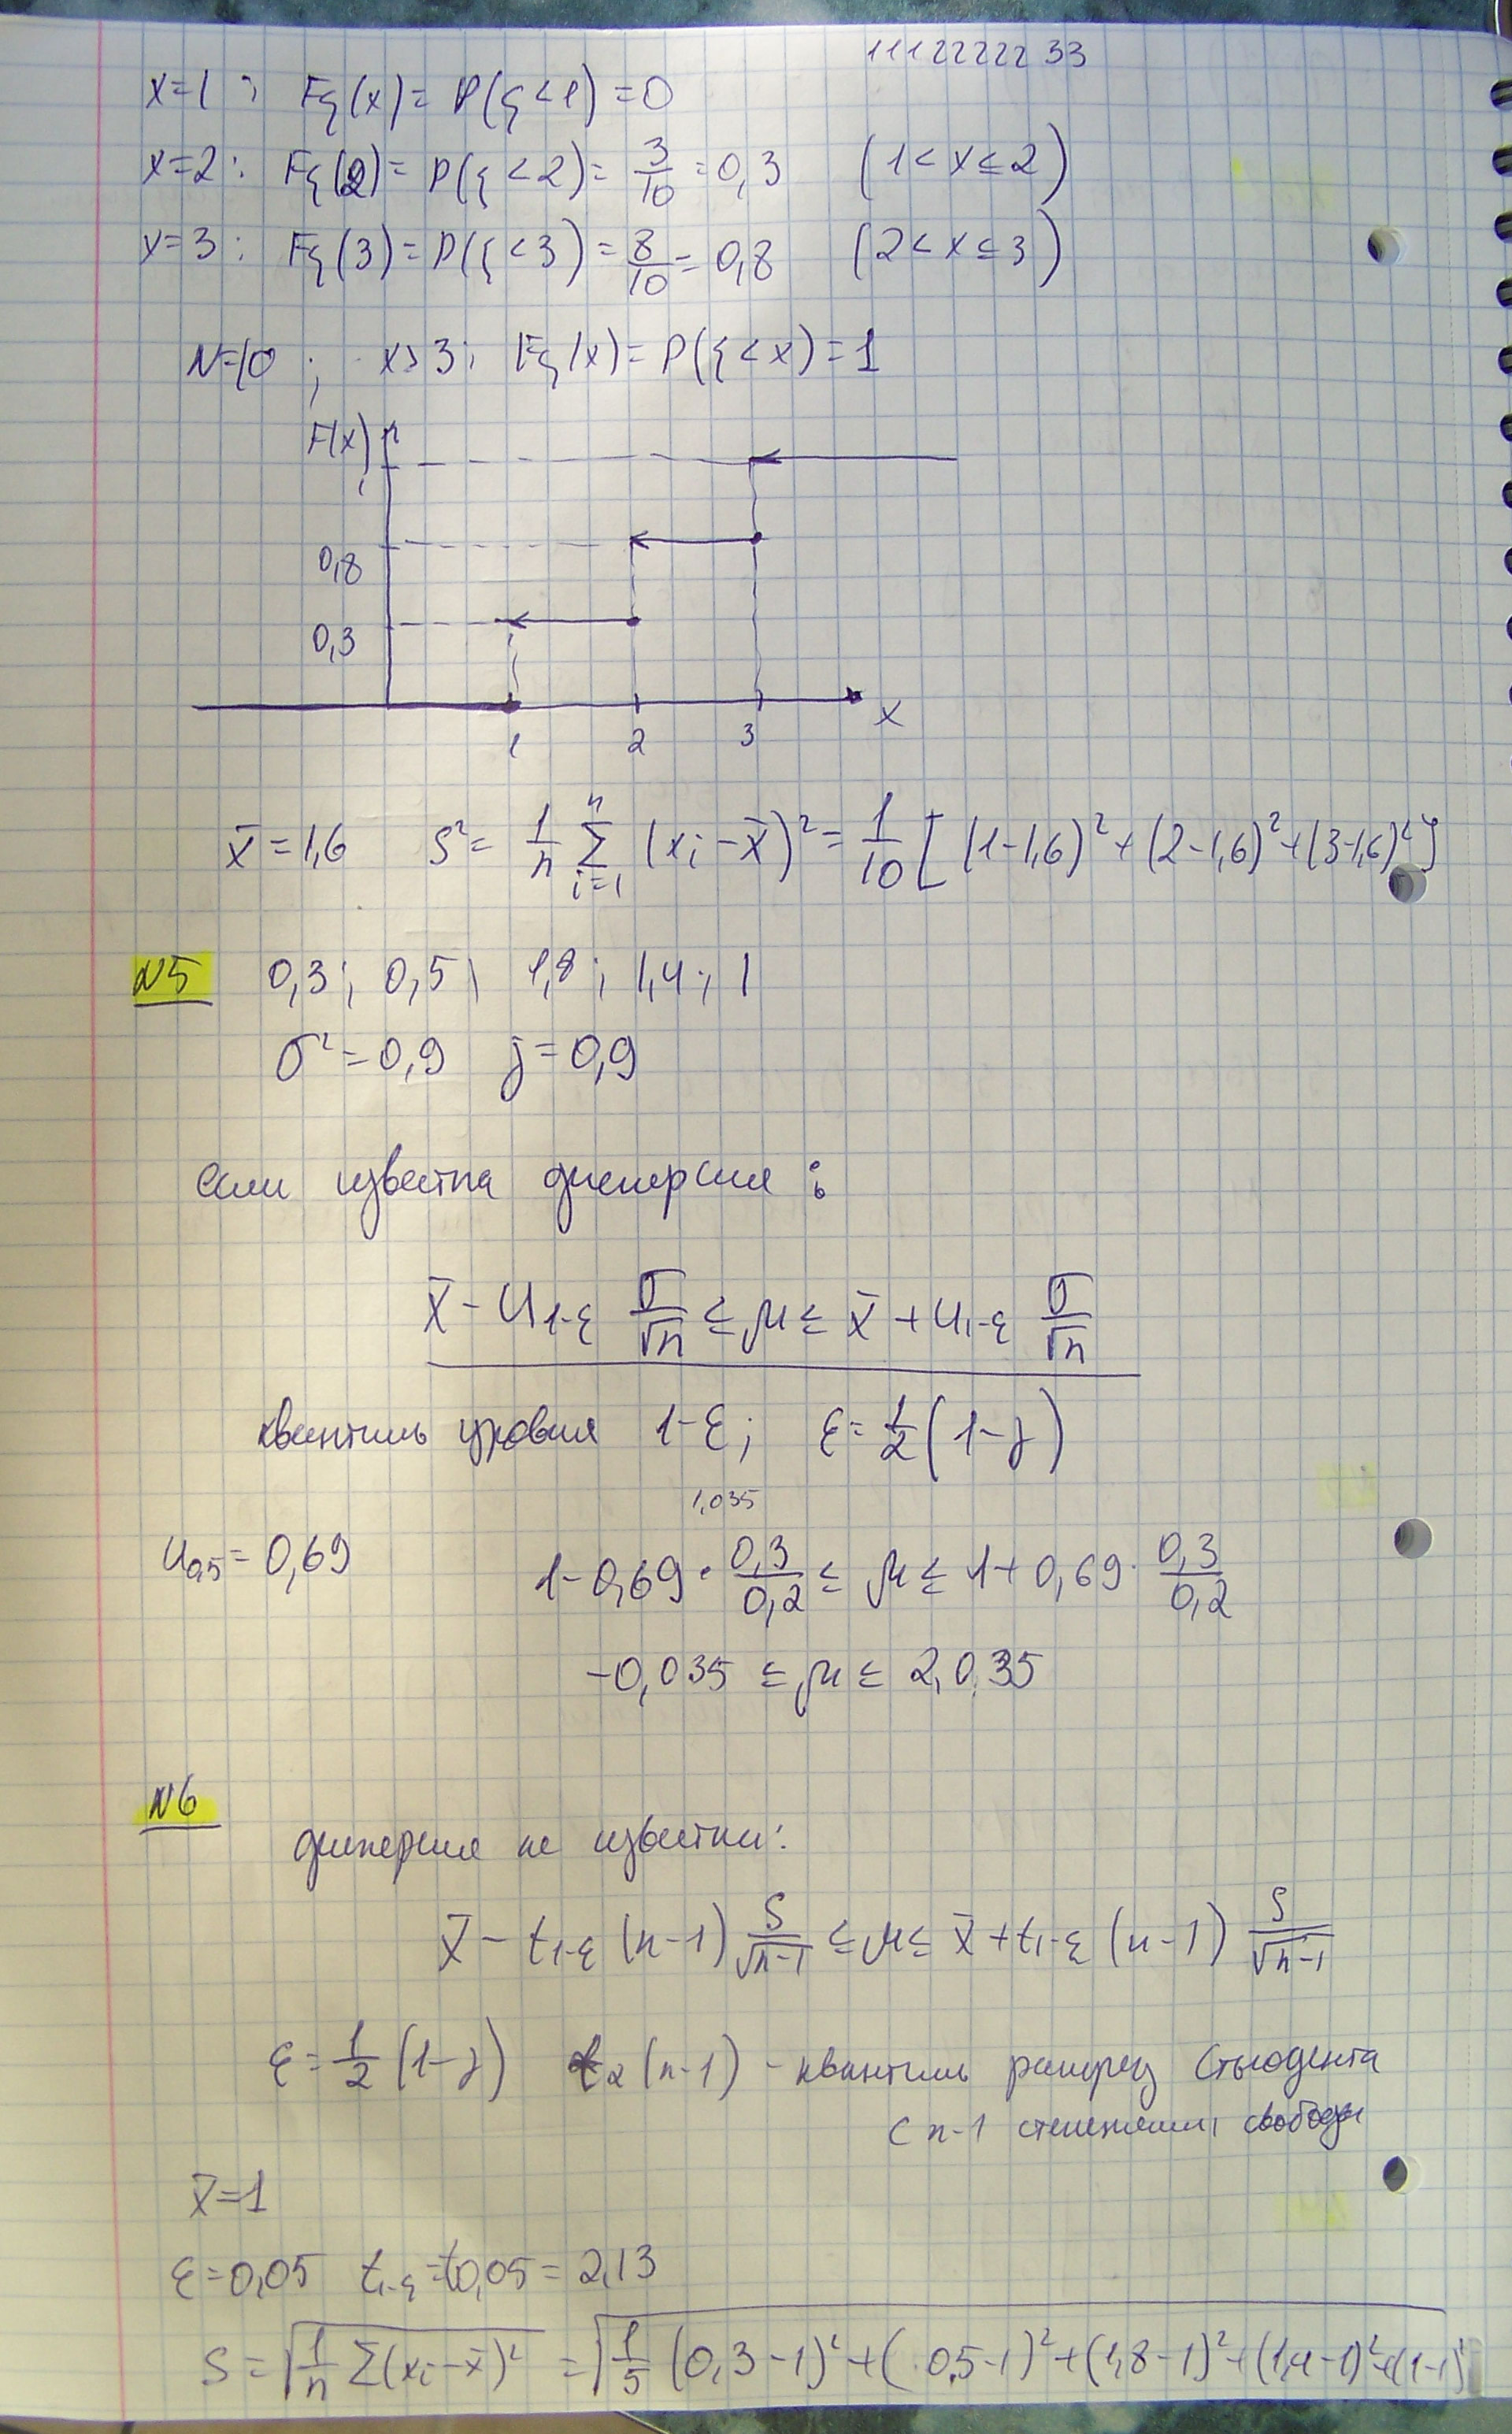 1112222233
x=1: Fξ(x)= P(ξ<1)=0
x=2: Fξ(2)= P(ξ<2)= 3/10 =0,3 (1<x≤2)
x=3: Fξ(3)=P(ξ<3)= 8/10 = 0,8 (2<x≤3)
N=10; x>3: Fξ(x)= P(ξ<x)=1
F(x)
1
0,8
0,3
1 2 3 x
x̄=1,6 S²= 1/n Σ_{i=1}^{n} (xᵢ-x̄)²= 1/10 [(1-1,6)²+(2-1,6)²+(3-1,6)²]
N5 0,3; 0,5; 1,8; 1,4; 1
σ²=0,9 γ=0,9
если известна дисперсия:
x̄ - u₁₋ε σ/√n ≤ μ ≤ x̄ + u₁₋ε σ/√n
квантиль уровня 1-ε; ε= 1/2 (1-γ)
1,035
u₀,₅= 0,69 1-0,69 · 0,3/0,2 ≤ μ ≤ 1+0,69 · 0,3/0,2
-0,035 ≤ μ ≤ 2,035
N6
дисперсия не известна:
x̄ - t₁₋ε (n-1) S/√(n-1) ≤ μ ≤ x̄ + t₁₋ε (n-1) S/√(n-1)
ε= 1/2 (1-γ) t₂ (n-1) - квантиль распред Стьюдента
с n-1 степенями свободы
x̄=1
ε=0,05 t₁₋ε=t₀,₀₅= 2,13
S= √(1/n Σ(xᵢ-x̄)²) = √(1/5 (0,3-1)²+(0,5-1)²+(1,8-1)²+(1,4-1)²+(1-1)²